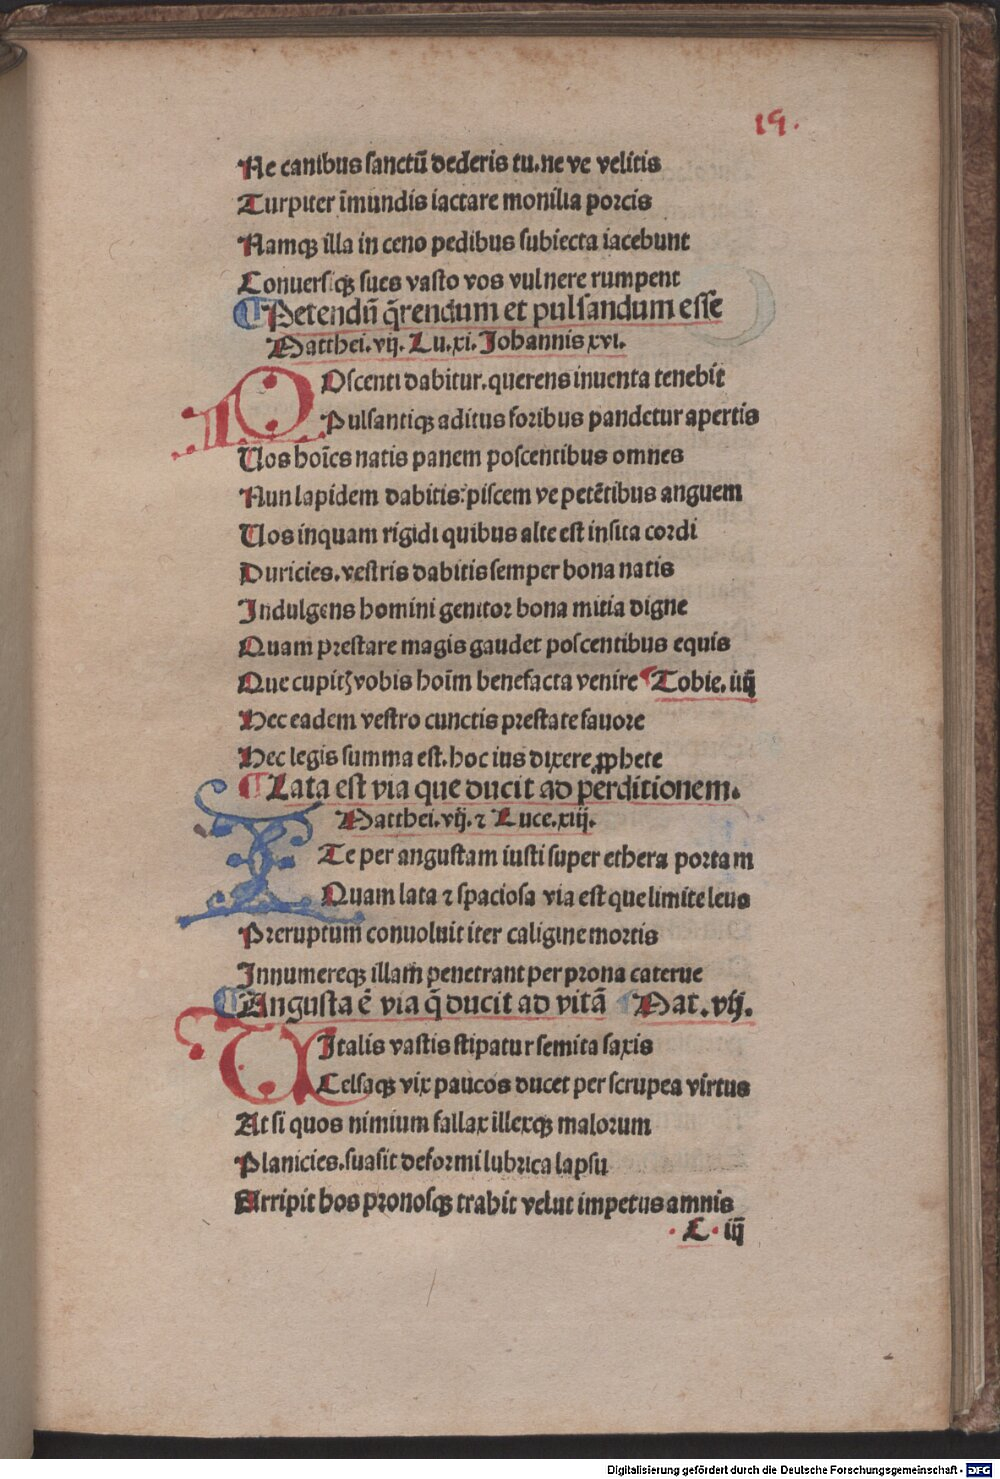 19.
Ne canibus sanctū dederis tu. ne ve velitis
Turpiter īmundis iactare monilia porcis
Namqꝫ illa in ceno pedibus subiecta iacebunt
Conuersiqꝫ sues vasto vos vulnere rumpent
¶ Petendū q̄rendum et pulsandum esse
Matthei. vij. Lu. xi. Johannis xvi.
POscenti dabitur. querens inuenta tenebit
Pulsantiqꝫ aditus foribus pandetur apertis
Uos hoīes natis panem poscentibus omnes
Nun lapidem dabitis: piscem ve petētibus anguem
Uos inquam rigidi quibus alte est insita cordi
Duricies. vestris dabitis semper bona natis
Indulgens homini genitor bona mitia digne
Quam prestare magis gaudet poscentibus equis
Que cupitꝭ vobis hoīm benefacta venire ¶ Tobie. iiij
Hec eadem vestro cunctis prestate fauore
Hec legis summa est. hoc ius dixere ꝓphete
¶ Lata est via que ducit ad perditionem.
Matthei. vij. ⁊ Luce. xiij.
ITe per angustam iusti super ethera portam
Quam lata ⁊ spaciosa via est que limite leuo
Preruptum conuoluit iter caligine mortis
Innumereqꝫ illam penetrant per prona caterue
¶ Angusta ē via q̄ ducit ad vitā ¶ Mat. vij.
UItalis vastis stipatur semita saxis
Celsaqꝫ vix paucos ducet per scrupea virtus
At si quos nimium fallax illexqꝫ malorum
Planicies. suasit deformi lubrica lapsu
Arripit hos pronosqꝫ trahit velut impetus amnis
C iij
Digitalisierung gefördert durch die Deutsche Forschungsgemeinschaft - DFG